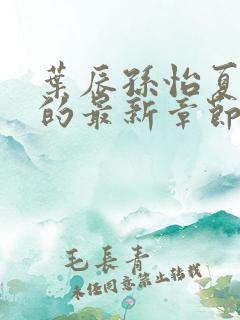 葉辰孫怡夏
的最新章節
毛長青
未经同意禁止转载